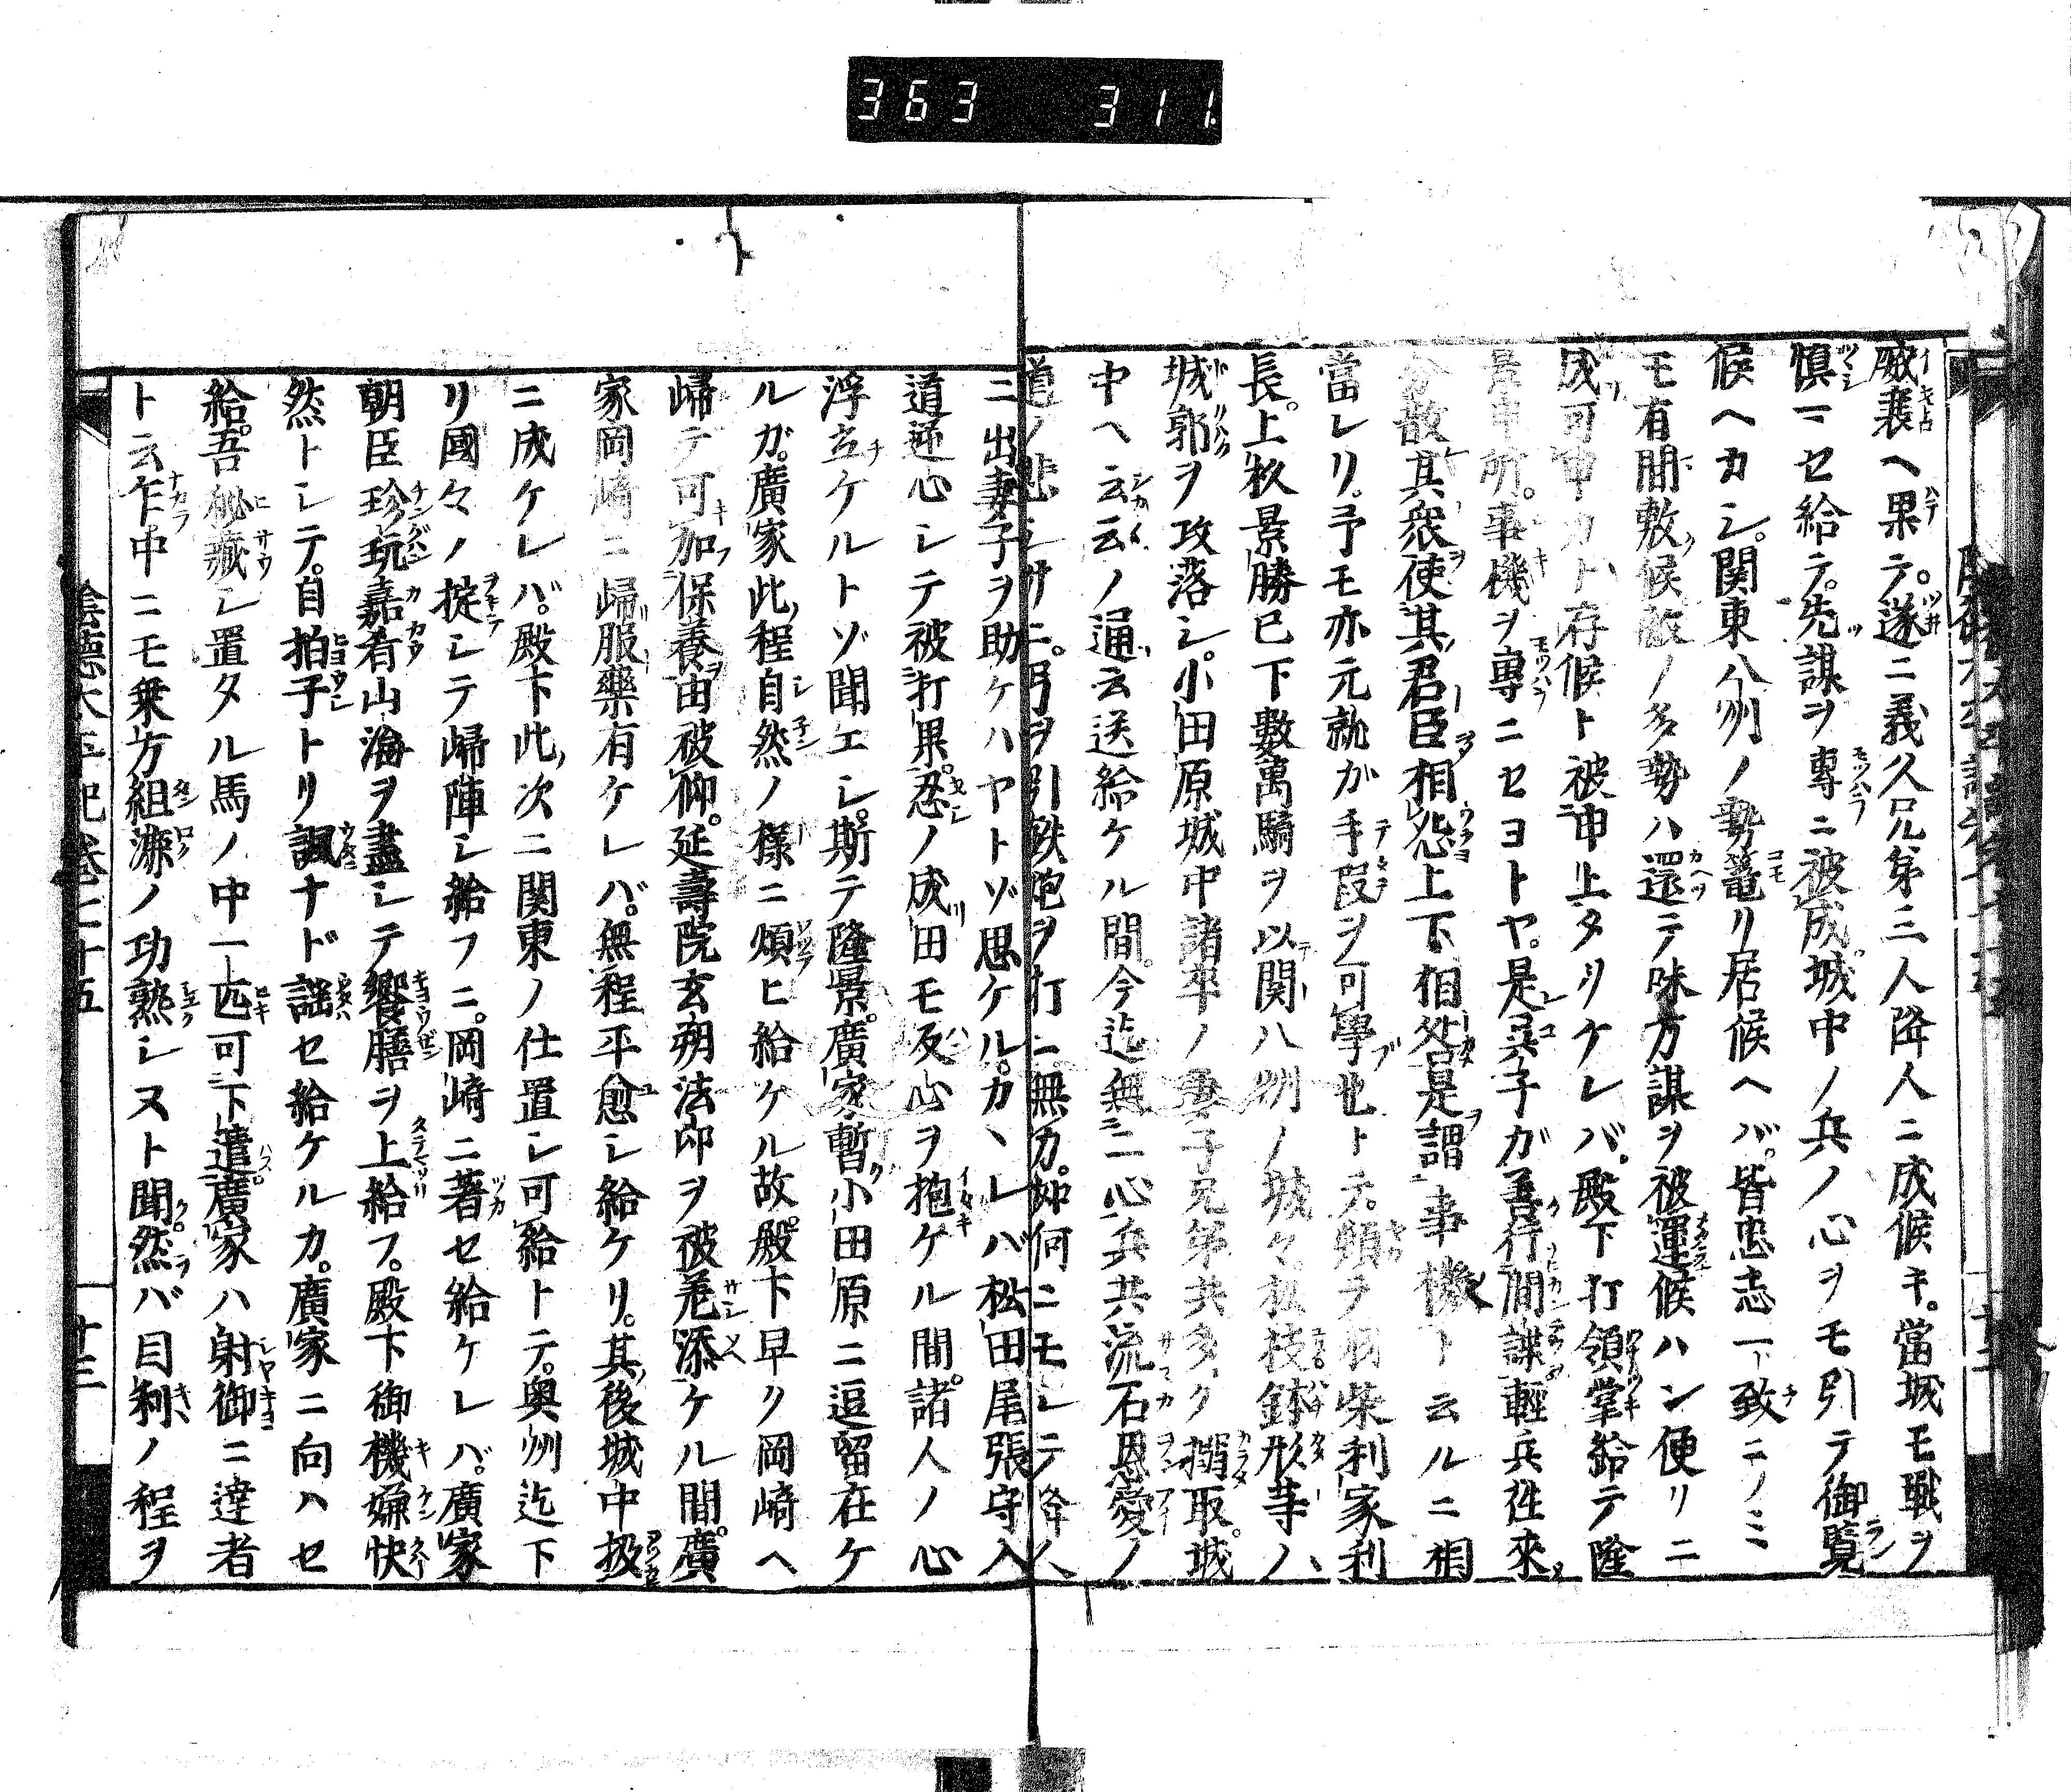 363 311
威衰ヘ果テ。遂ニ義久兄弟三人降人ニ成候キ。當城モ戰ヲ
慎マセ給テ。先謀ヲ專ニ被成城中ノ兵ノ心ヲモ引テ御覧
候ヘカシ。関東八州ノ勢篭リ居候ヘバ。皆忠志一致ニノミ
モ有間敷候敵ノ多勢ハ還テ味方謀ヲ被運候ハン便リニ
成可申カト存候ト被申上タリケレバ。殿下打領掌給テ隆
景申所。事機ヲ專ニセヨトヤ。是呉子ガ善行間諜輕兵往來
分散其衆使其君臣相怨上下相咎是謂事機ト云ルニ相
當レリ。予モ亦元就ガ手段ヲ可學也トテ。頓テ羽柴利家利
長。上杉景勝已下數萬騎ヲ以関八州ノ城々松枝鉢形等ノ
城郭ヲ攻落シ。小田原城中諸卒ノ妻子兄弟共多ク搦取。城
中ヘ云云ノ通云送給ケル間。今迄無二心兵共流石恩愛ノ
道ノ悲シサニ。弓ヲ引鉄炮ヲ打ニ無力。如何ニモシテ降人
ニ出妻子ヲ助ケハヤトゾ思ケル。カヽレバ松田尾張守入
道逆心シテ被打果。忍ノ成田モ反心ヲ抱ケル間。諸人ノ心
浮立ケルトゾ聞エシ。斯テ隆景。廣家暫小田原ニ逗留在ケ
ルガ。廣家此程自然ノ様ニ煩ヒ給ケル故。殿下早ク岡崎ヘ
歸テ可加保養由被仰。延壽院玄朔法印ヲ被差添ケル間。廣
家岡崎ニ歸服藥有ケレバ。無程平愈シ給ケリ。其後城中扱
ニ成ケレバ。殿下此次ニ関東ノ仕置シ可給トテ。奥州迄下
リ國々ノ掟シテ歸陣シ給フニ。岡崎ニ著セ給ケレバ。廣家
朝臣珍玩嘉肴山海ヲ盡シテ饗膳ヲ上給フ。殿下御機嫌快
然トシテ。自拍子トリ諷ナド謡セ給ケルカ。廣家ニ向ハセ
給。吾秘蔵シ置タル馬ノ中一匹可下遣廣家ハ射御ニ達者
ト云乍中ニモ乗方組漉ノ功熟シヌト聞然バ目利ノ程ヲ
陰徳太平記巻七十五
十三